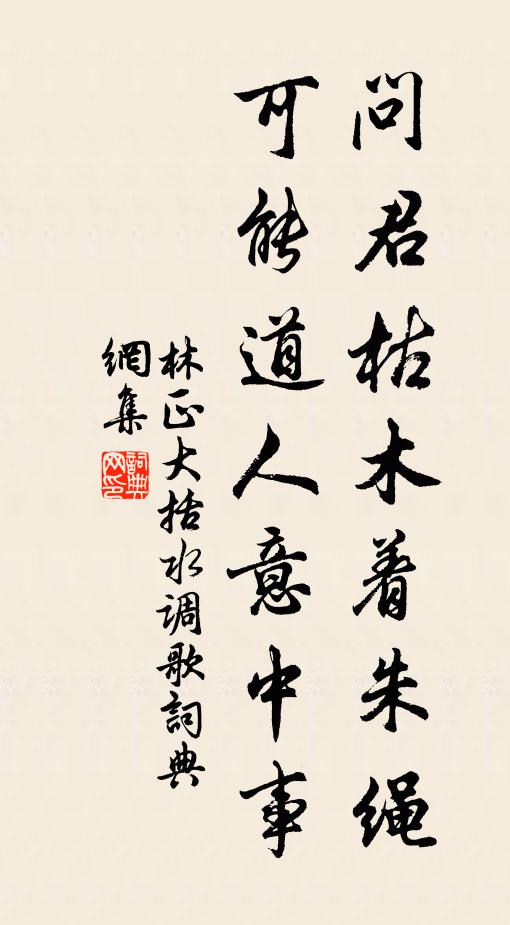 问君枯木着朱绳
可能道人意中事
林正大括水调歌词典
網集
詞典網印